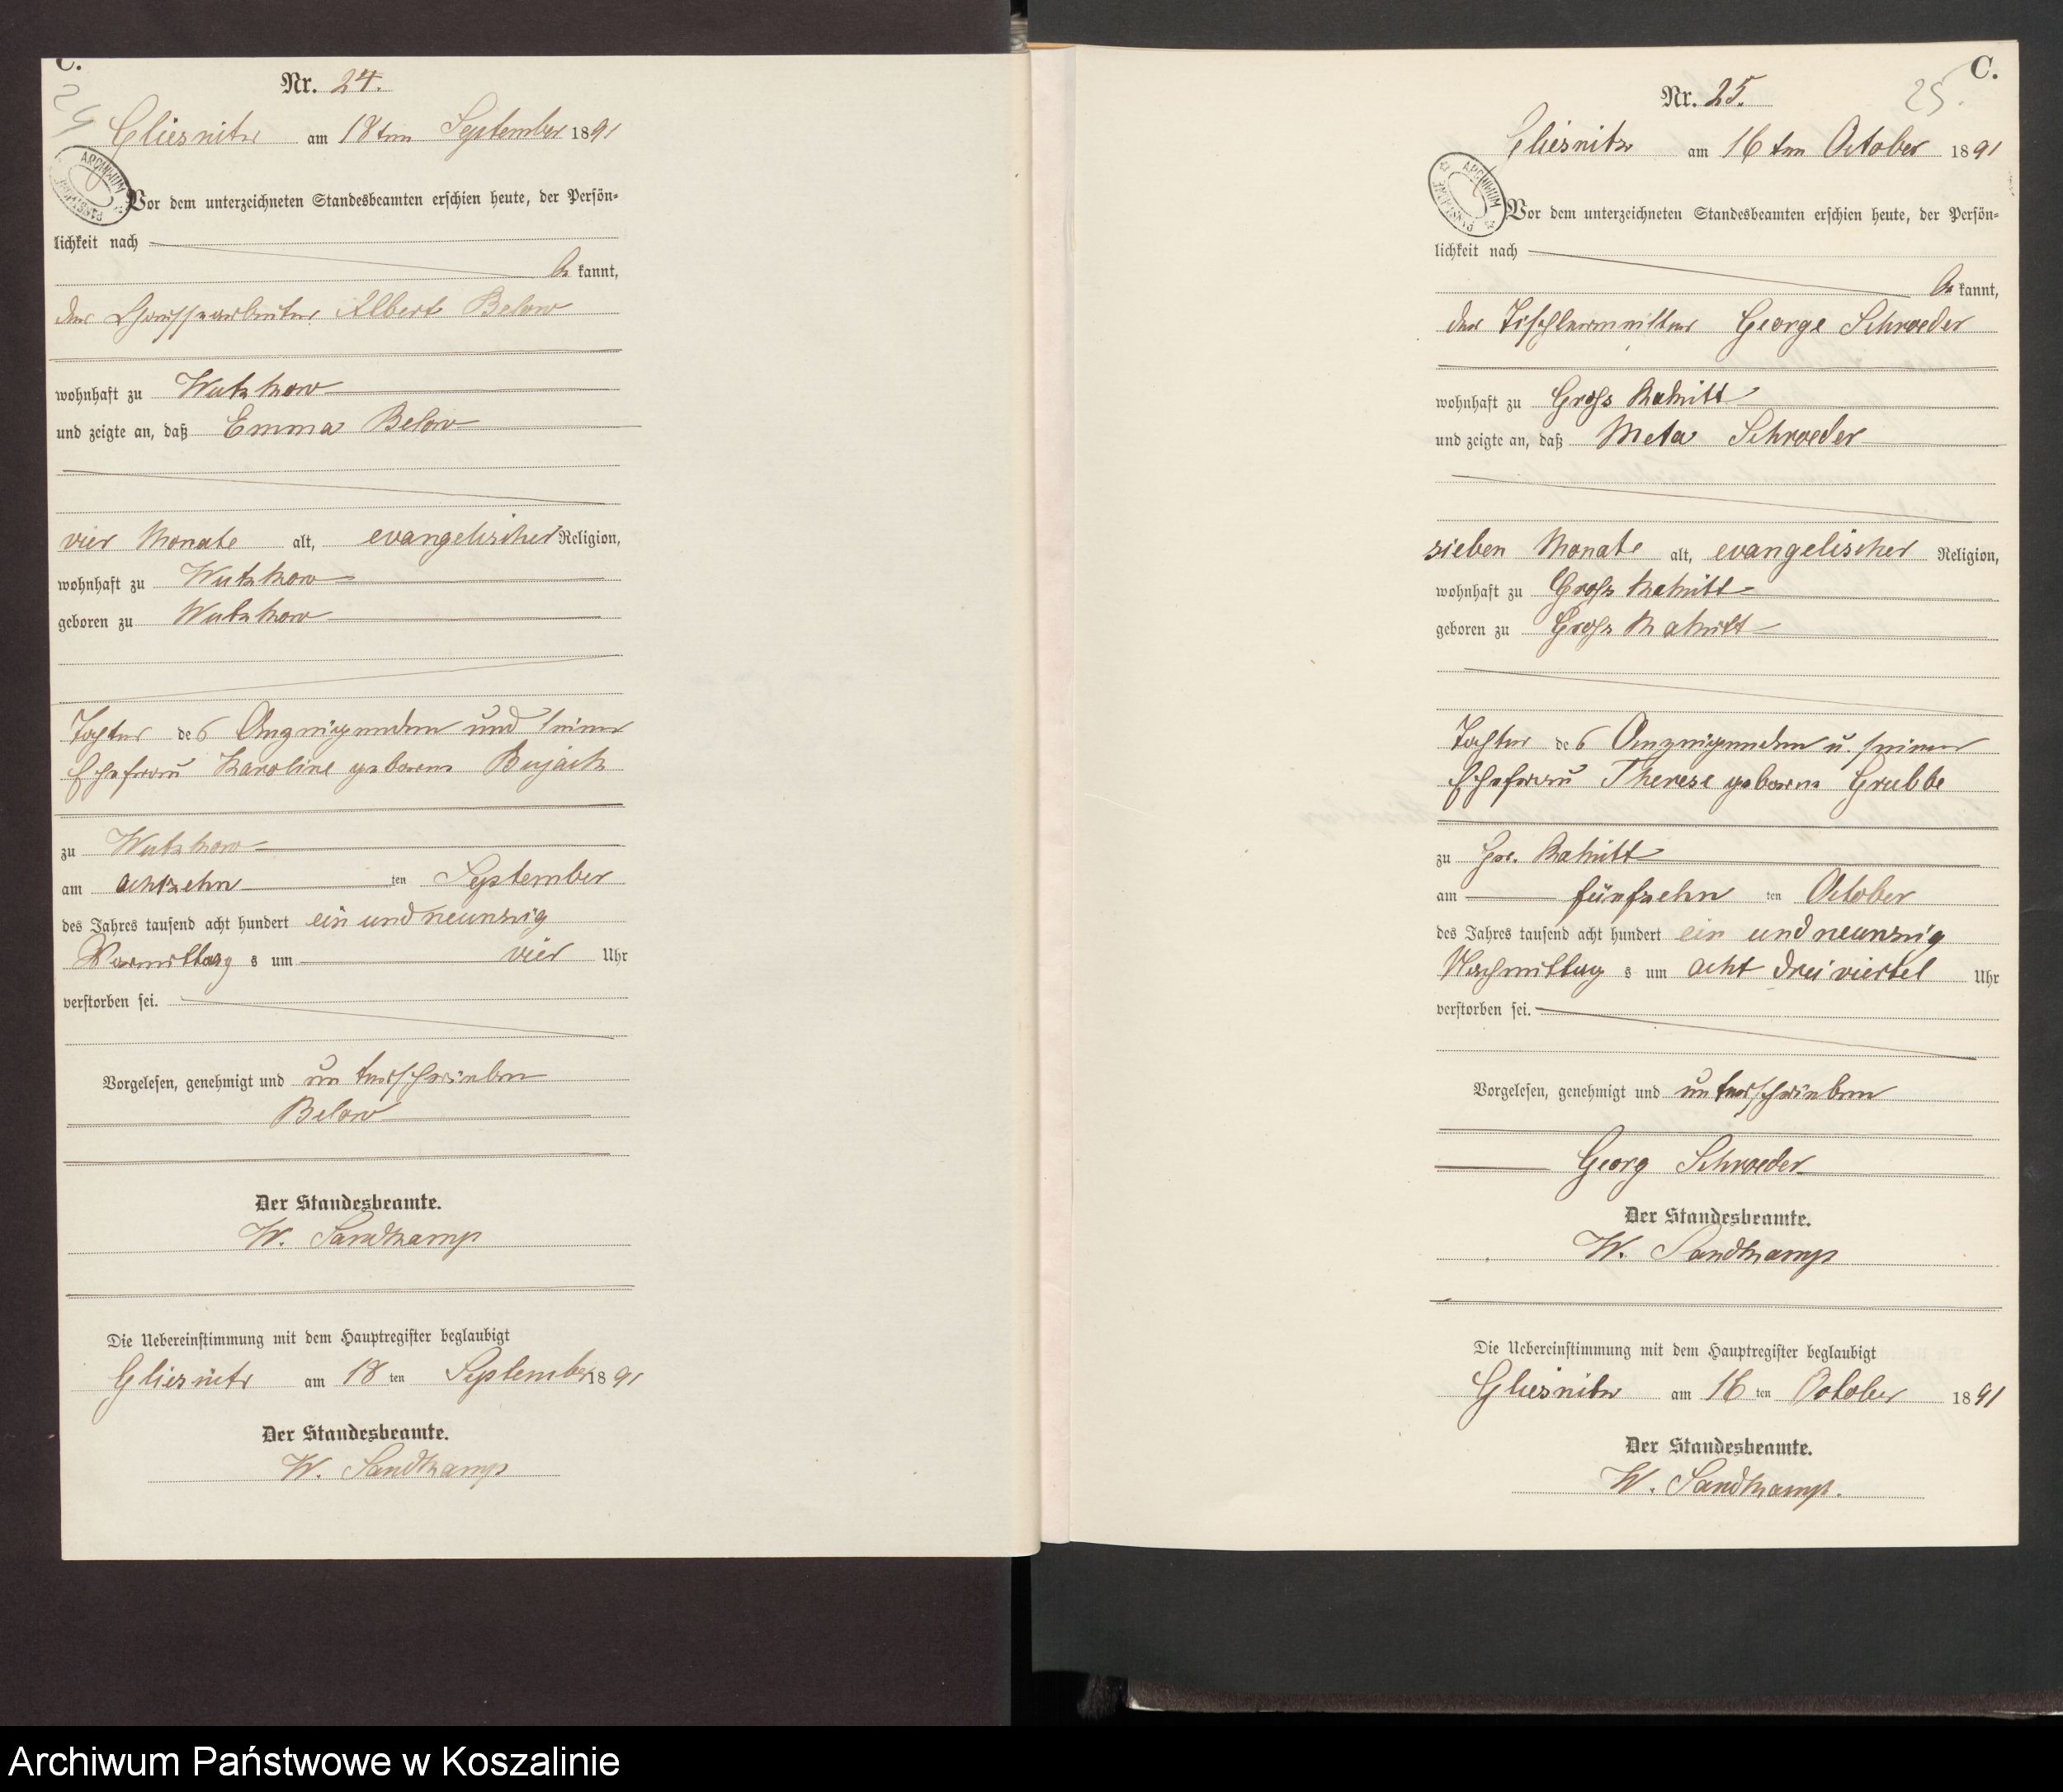 C.
24
Nr. 24.
Gliesnitz am 18ten September 1891
ARCHIWUM
Vor dem unterzeichneten Standesbeamten erschien heute, der Persön-
lichkeit nach
be kannt,
der Chausseearbeiter Albert Below
wohnhaft zu Wutzkow
und zeigte an, daß Emma Below
vier Monate alt, evangelischer Religion,
wohnhaft zu Wutzkow
geboren zu Wutzkow
Tochter des Anzeigenden und seiner
Ehefrau Karoline geborene Bujack
zu Wutzkow
am achtzehn ten September
des Jahres tausend acht hundert ein und neunzig
Vormittag s um vier Uhr
verstorben sei.
Vorgelesen, genehmigt und unterschrieben
Below
Der Standesbeamte.
W. Sandkamp
Die Uebereinstimmung mit dem Hauptregister beglaubigt
Gliesnitz am 18 ten September 1891
Der Standesbeamte.
W. Sandkamp
C.
25.
Nr. 25.
Gliesnitz am 16ten October 1891
ARCHIWUM
Vor dem unterzeichneten Standesbeamten erschien heute, der Persön-
lichkeit nach
be kannt,
der Tischlermeister George Schroeder
wohnhaft zu Gross Rakitt
und zeigte an, daß Meta Schroeder
sieben Monate alt, evangelischer Religion,
wohnhaft zu Gross Rakitt
geboren zu Gross Rakitt
Tochter des Anzeigenden u. seiner
Ehefrau Therese geborne Grubbe
zu Gr. Rakitt
am fünfzehn ten October
des Jahres tausend acht hundert ein und neunzig
Nachmittag s um acht drei viertel Uhr
verstorben sei.
Vorgelesen, genehmigt und unterschrieben
Georg Schroeder
Der Standesbeamte.
W. Sandkamp
Die Uebereinstimmung mit dem Hauptregister beglaubigt
Gliesnitz am 16 ten October 1891
Der Standesbeamte.
W. Sandkamp.
Archiwum Państwowe w Koszalinie